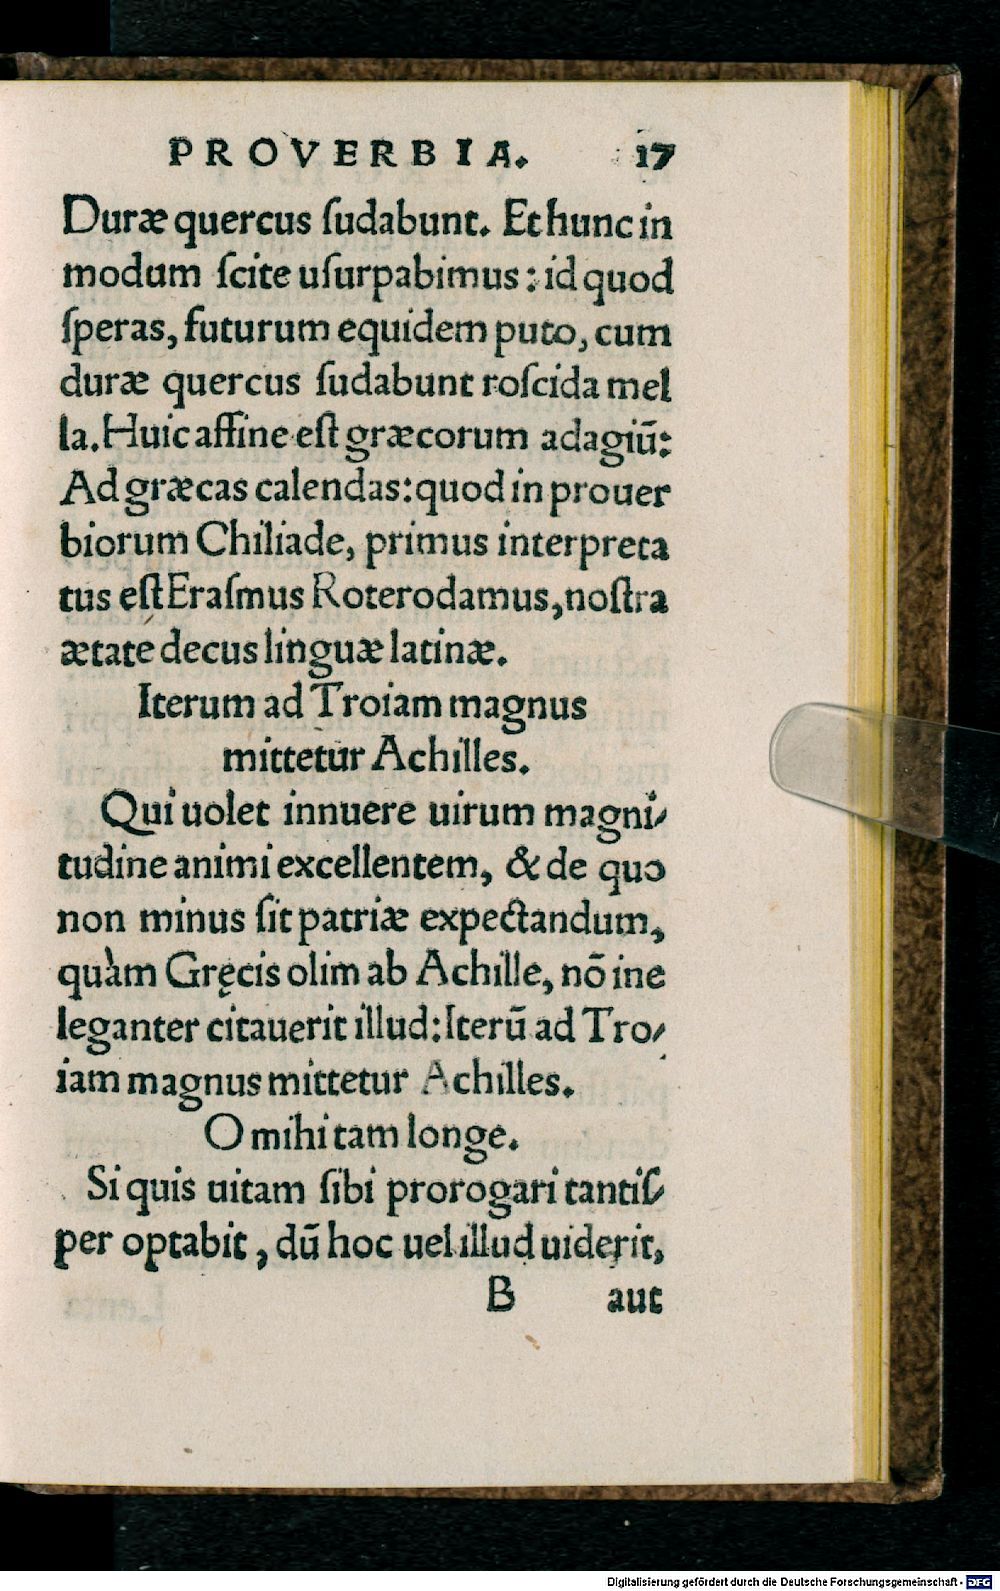 PROVERBIA. 17
Duræ quercus ſudabunt. Et hunc in
modum ſcite uſurpabimus: id quod
ſperas, futurum equidem puto, cum
duræ quercus ſudabunt roſcida mel
la. Huic affine eſt græcorum adagiū:
Ad græcas calendas: quod in prouer
biorum Chiliade, primus interpreta
tus eſt Eraſmus Roterodamus, noſtra
ætate decus linguæ latinæ.
Iterum ad Troiam magnus
mittetur Achilles.
Qui uolet innuere uirum magni⸗
tudine animi excellentem, & de quo
non minus ſit patriæ expectandum,
quàm Gręcis olim ab Achille, nō ine
leganter citauerit illud: Iterū ad Tro⸗
iam magnus mittetur Achilles.
O mihi tam longe.
Si quis uitam ſibi prorogari tantiſ⸗
per optabit, dū hoc uel illud uiderit,
B aut
Digitalisierung gefördert durch die Deutsche Forschungsgemeinschaft - DFG